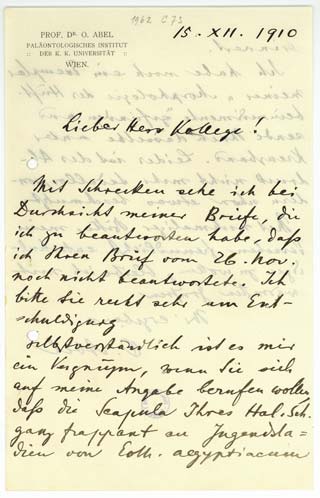 1962 C 73
PROF. DR. O. ABEL
PALÄONTOLOGISCHES INSTITUT
:: DES K. K. UNIVERSITÄT ::
WIEN.
15. XII. 1910
Lieber Herr Kollege!
Mit Schrecken sehe ich bei
Durchsicht meiner Briefe, die
ich zu beantworten habe, daß
ich Ihren Brief vom 26. Nov.
noch nicht beantwortete. Ich
bitte Sie recht sehr um Ent-
schuldigung
selbstverständlich ist es mir
ein Vergnügen, wenn Sie sich
auf meine Angabe berufen wollen
daß die Scapula Ihres Hal. Sch.
ganz frappant an Jugendsta=
dien von Eoth. aegyptiacum